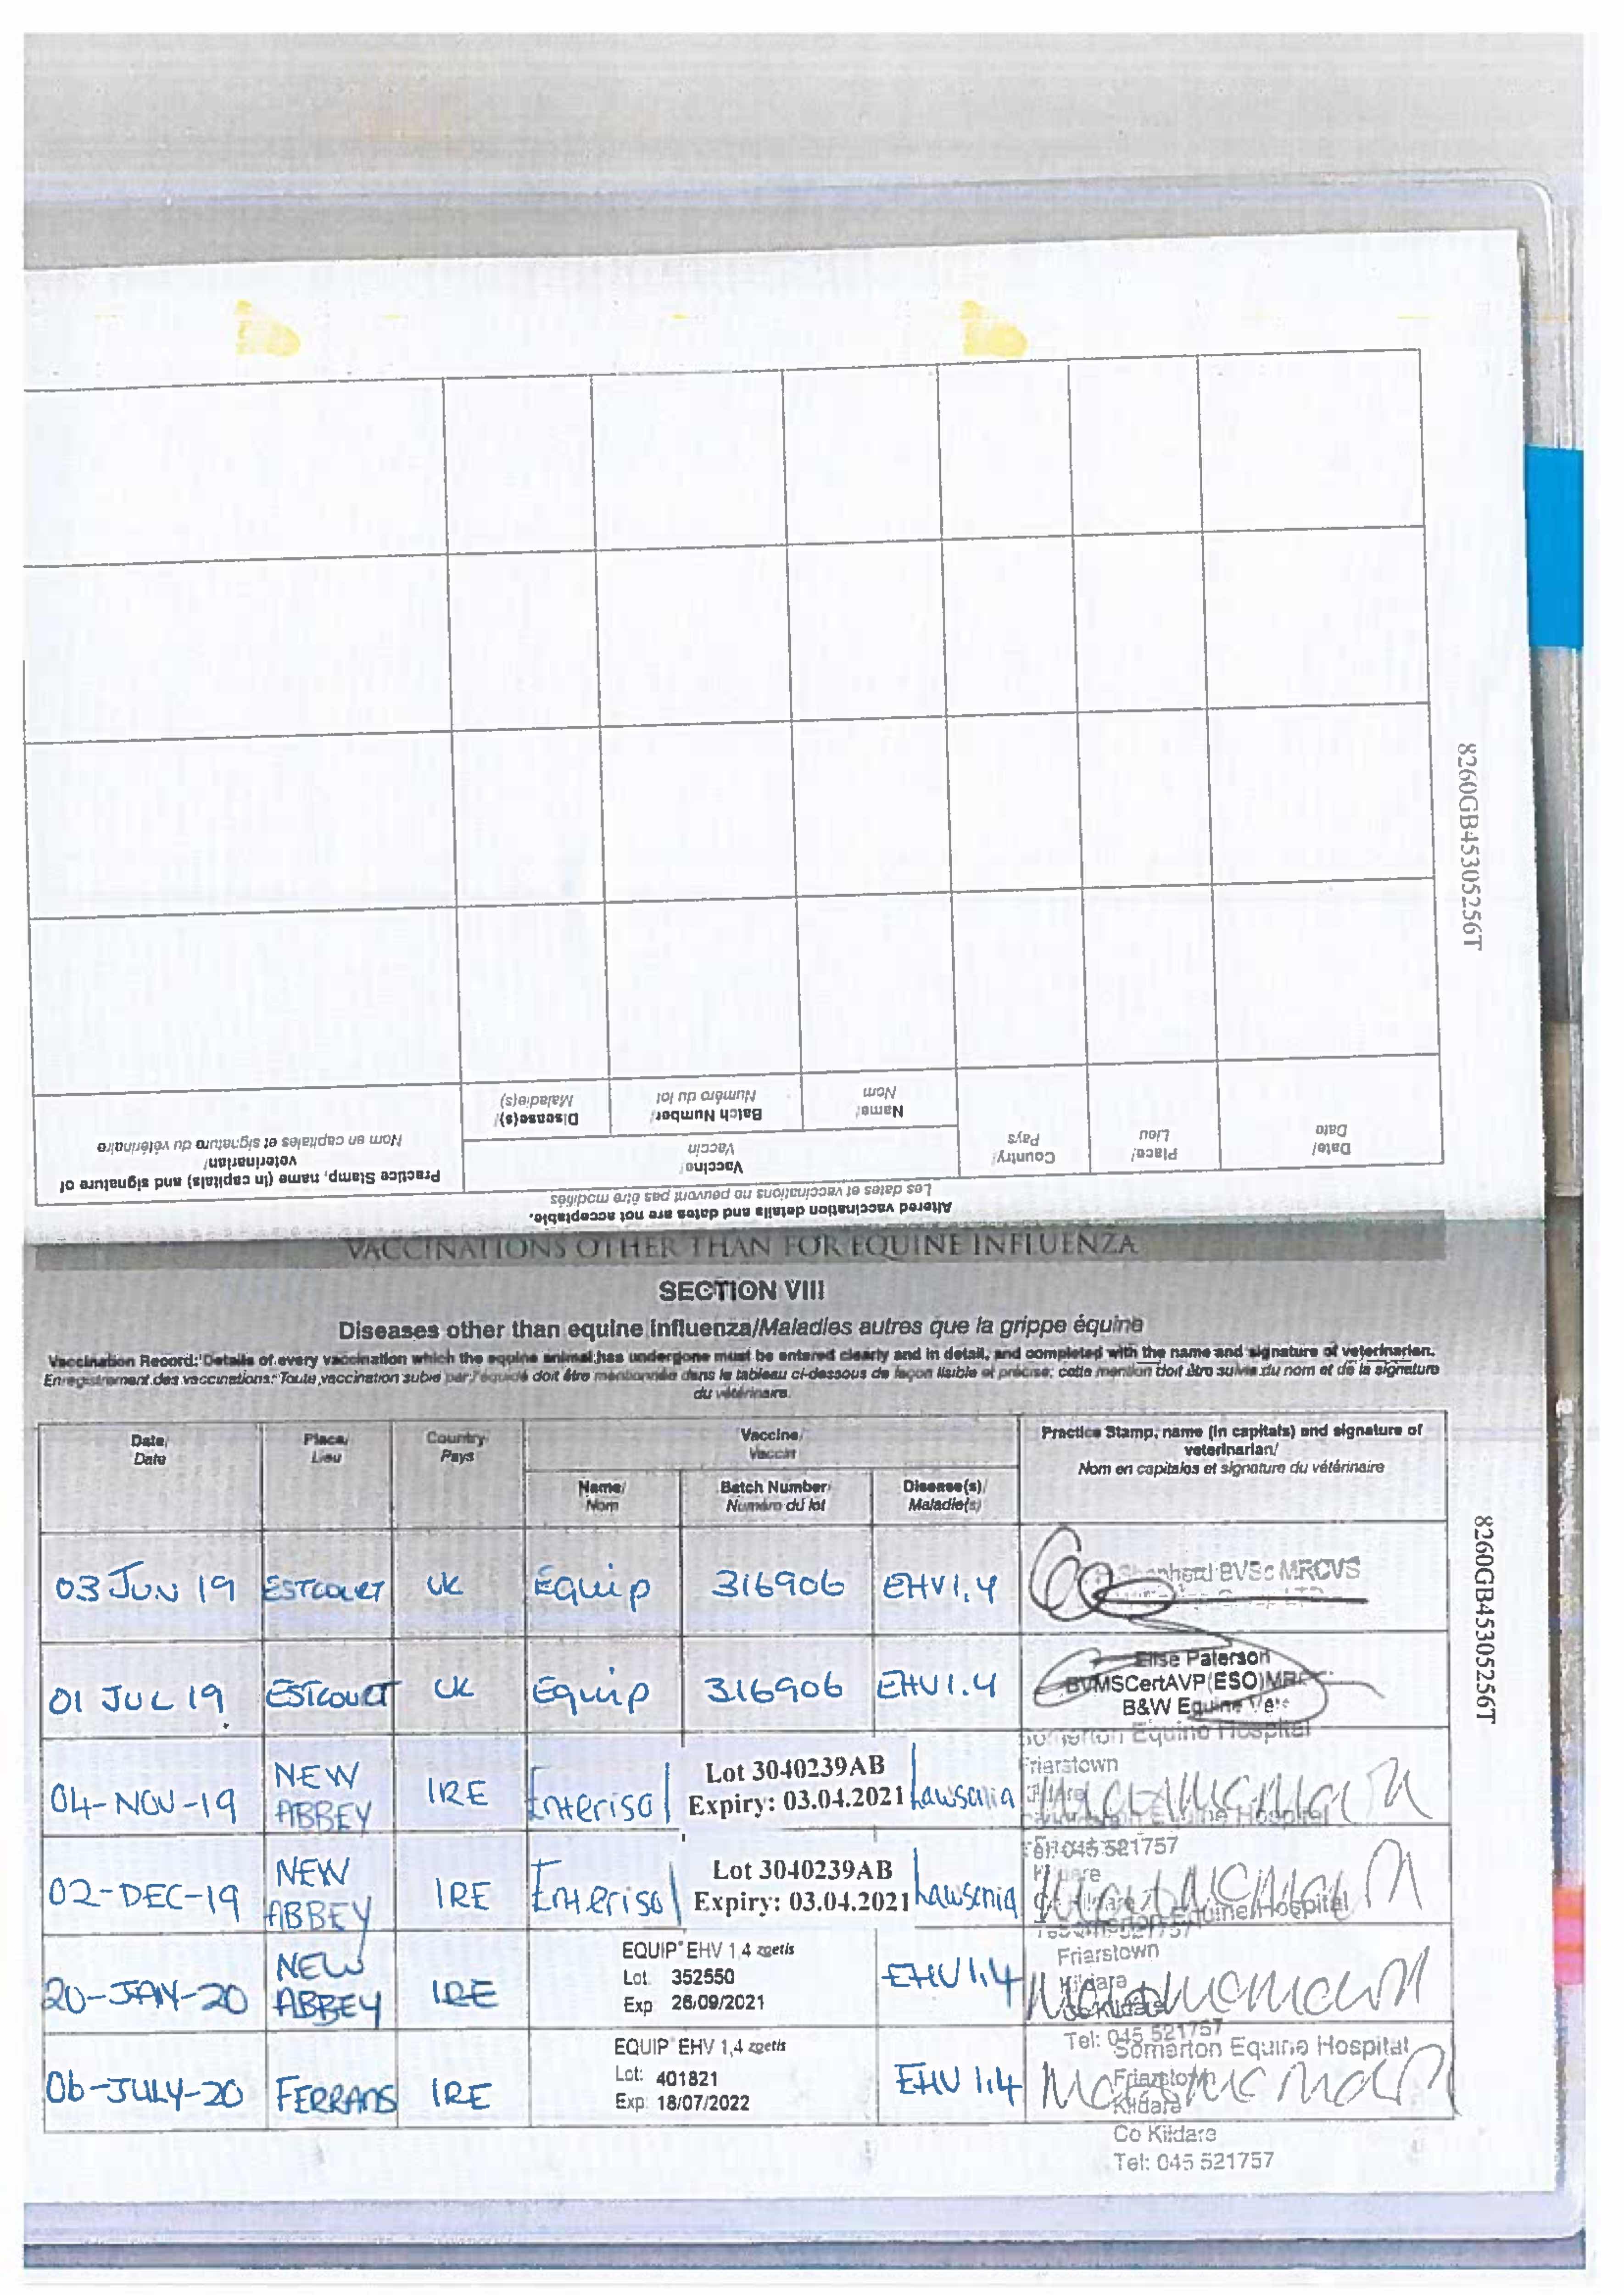 8260GB45305256T
Practice Stamp, name (in capitals) and signature of
veterinarian/
Nom en capitales et signature du vétérinaire
Disease(s)/
Maladie(s)
Batch Number/
Numéro du lot
Name/
Nom
Vaccine/
Vaccin
Country/
Pays
Place/
Lieu
Date/
Date
Altered vaccination details and dates are not acceptable.
Les dates et vaccinations ne peuvent pas être modifiées
VACCINATIONS OTHER THAN FOR EQUINE INFLUENZA
SECTION VIII
Diseases other than equine influenza/Maladies autres que la grippe équine
Vaccination Record: Details of every vaccination which the equine animal has undergone must be entered clearly and in detail, and completed with the name and signature of veterinarian.
Enregistrement des vaccinations: Toute vaccination subie par l'équidé doit être mentionnée dans le tableau ci-dessous de façon lisible et précise; cette mention doit être suivie du nom et de la signature
du vétérinaire.
Date/
Date
Place/
Lieu
Country/
Pays
Vaccine/
Vaccin
Name/
Nom
Batch Number/
Numéro du lot
Disease(s)/
Maladie(s)
Practice Stamp, name (in capitals) and signature of
veterinarian/
Nom en capitales et signature du vétérinaire
8260GB45305256T
03 JUN 19 ESTCOURT UK Equip 316906 EHV1.4
BVSc MRCVS
01 JUL 19 ESTCOURT UK Equip 316906 EHV1.4
Elise Paterson
BVMSCertAVP(ESO)
B&W Equine Vets
04-NOV-19 NEW ABBEY IRE Enterisol Lot 3040239AB
Expiry: 03.04.2021 Lawsonia
Somerton Equine Hospital
Friarstown
Kildare
02-DEC-19 NEW ABBEY IRE Enterisol Lot 3040239AB
Expiry: 03.04.2021 Lawsonia
Equine Hospital
Tel: 045 521757
20-JAN-20 NEW ABBEY IRE EQUIP EHV 1,4 zoetis
Lot 352550
Exp 26/09/2021
EHV 1,4
Somerton Equine Hospital
Friarstown
Kildare
Co Kildare
Tel: 045 521757
06-JULY-20 FERRANS IRE EQUIP EHV 1,4 zoetis
Lot: 401821
Exp: 18/07/2022
EHV 1.4
Somerton Equine Hospital
Friarstown
Kildare
Co Kildare
Tel: 045 521757